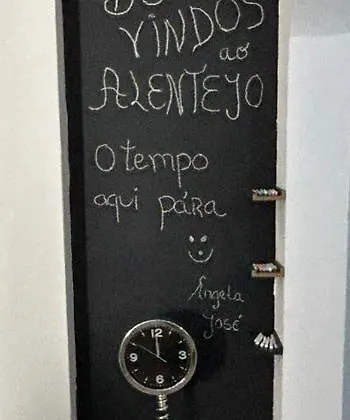 VINDOS
ao
ALENTEJO
O tempo
aqui pára
Ângela
José
12
9 3
6